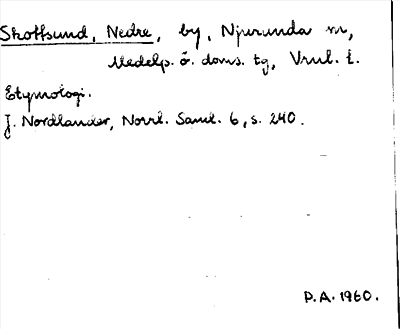 Skottsund, Nedre, by, Njurunda sn,
Medelp. ö. doms. tg, Vnrl. l.
Etymologi.
J. Nordlander, Norrl. Saml. 6, s. 240.
P.A. 1960.